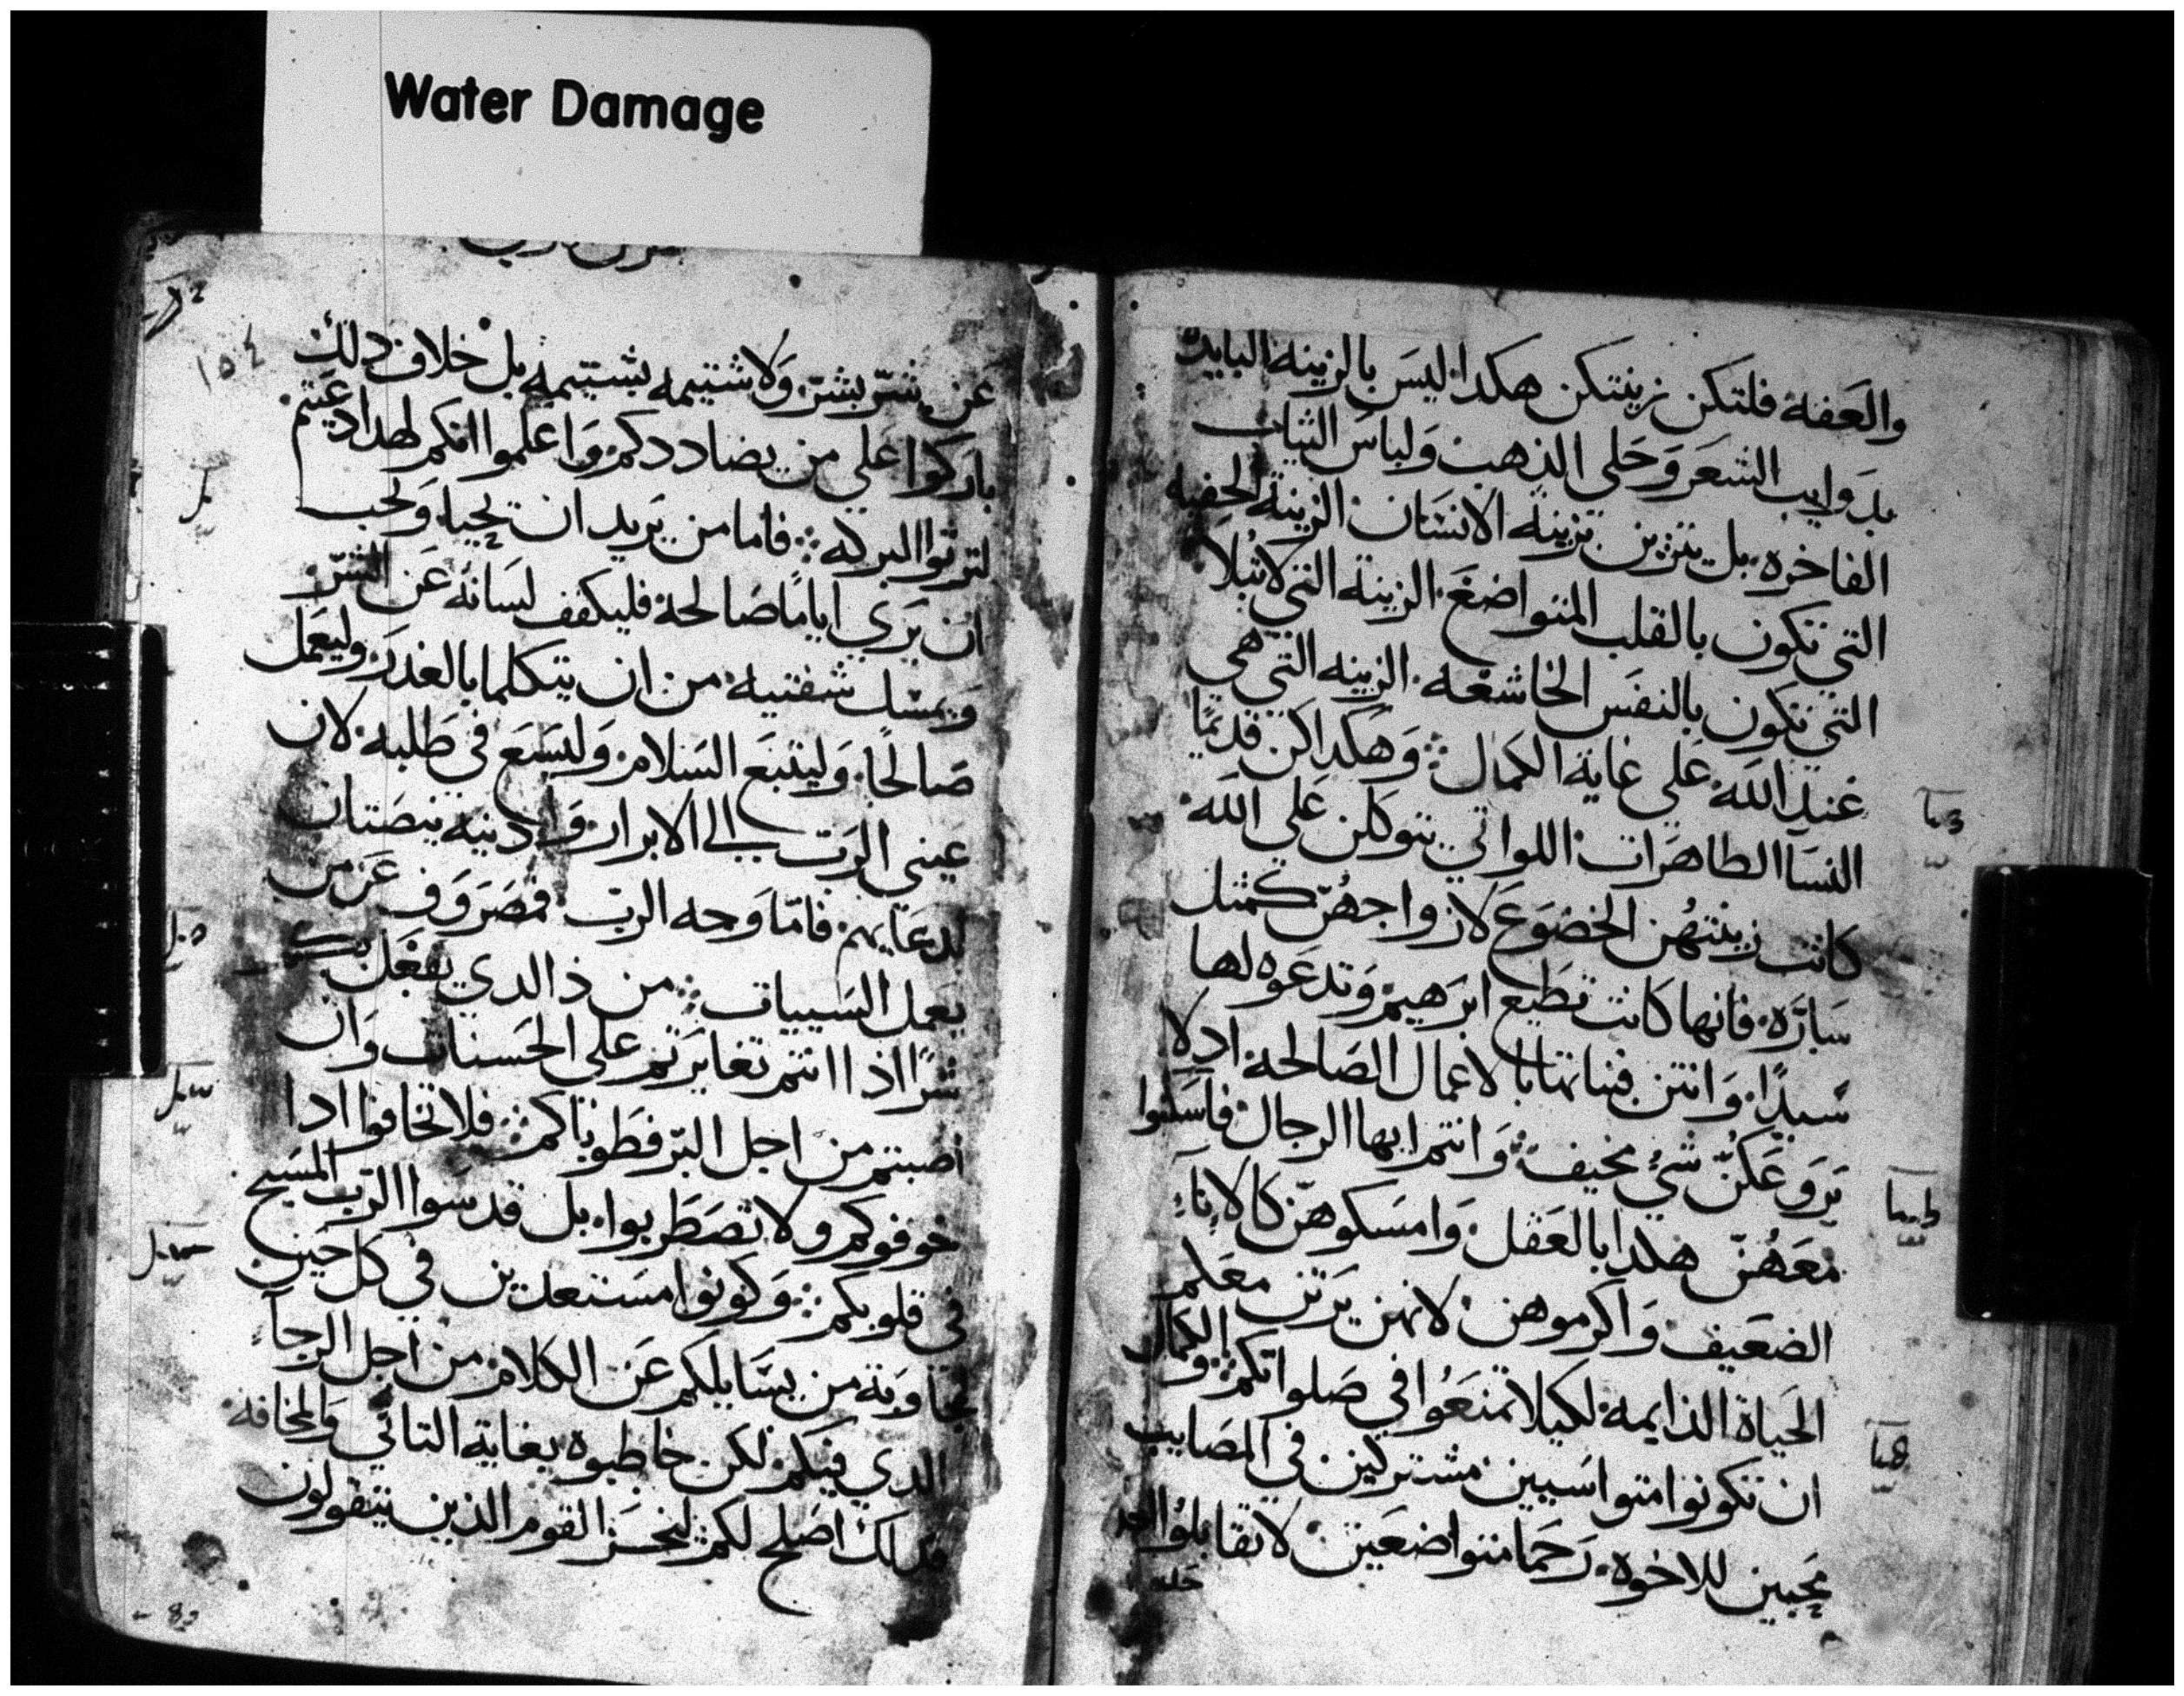 Water Damage
والعفه فلتكن زينتكن هكدا ليس بالزينه البايده
بدوايب الشعر وحلي الذهب ولباس الثياب
الفاخره بل يتزين بزينة الانسان الزينة الخفيه
التي تكون بالقلب المتواضع الزينة التي لا تبلا
التي تكون بالنفس الخاشعه الزينه التي هي
عند الله على غاية الكمال وهكدا كن قديمًا
النسا الطاهرات اللواتي يتوكلن على الله
كانت زينتهن الخضوع لازواجهن كمثل
سارّه فانها كانت تطيع ابرهيم وتدعوه لها
سيدًا وانتن فبناتها بالاعمال الصالحة اد لا
يروعكنّ شيء مخيف وانتم ايها الرجال فاسكنوا
معهنّ هكدا بالعقل وامسكوهنّ كالاناء
الضعيف واكرموهن لانهن يرثن معكم
الحياة الدايمه لكيلا تمنعوا في صلواتكم والكمال
ان تكونوا متواسيين مشتركين في المصايب
محبين للاخوه رحما متواضعين لا تقابلوا احد
١٥٤
عن شرّ بشرّ ولا شتيمه بشتيمه بل خلاف دلك
باركوا على من يضاددكم واعلموا انكم لهدا دعيتم
لترثوا البركه فاما من يريد ان يحيا ويحب
ان يري ايامًا صالحة فليكفف لسانه عن الشرّ
ويمسك شفتيه من ان يتكلما بالغدر وليعمل
صالحًا وليتبع السلام وليسع في طلبه لان
عيني الرب الي الابرار وادنيه ينصتان
لدعايهم فامّا وجه الرب فمصروف عن من
يعمل السييات من ذا الدي يفعل بكم
شرًا اذا انتم تغايرتم على الحسنات وان
اصبتم من اجل البرّ فطوباكم فلا تخافوا ادا
خوفوكم ولا تضطربوا بل قدسوا الرب المسيح
في قلوبكم وكونوا مستعدين في كل حين
لمجاوبة من يسايلكم عن الكلام من اجل الرجاء
الدي فيكم لكن خاطبوه بغاية التاني والمخافه
فدلك اصلح لكم ليخز القوم الذين يتقولون